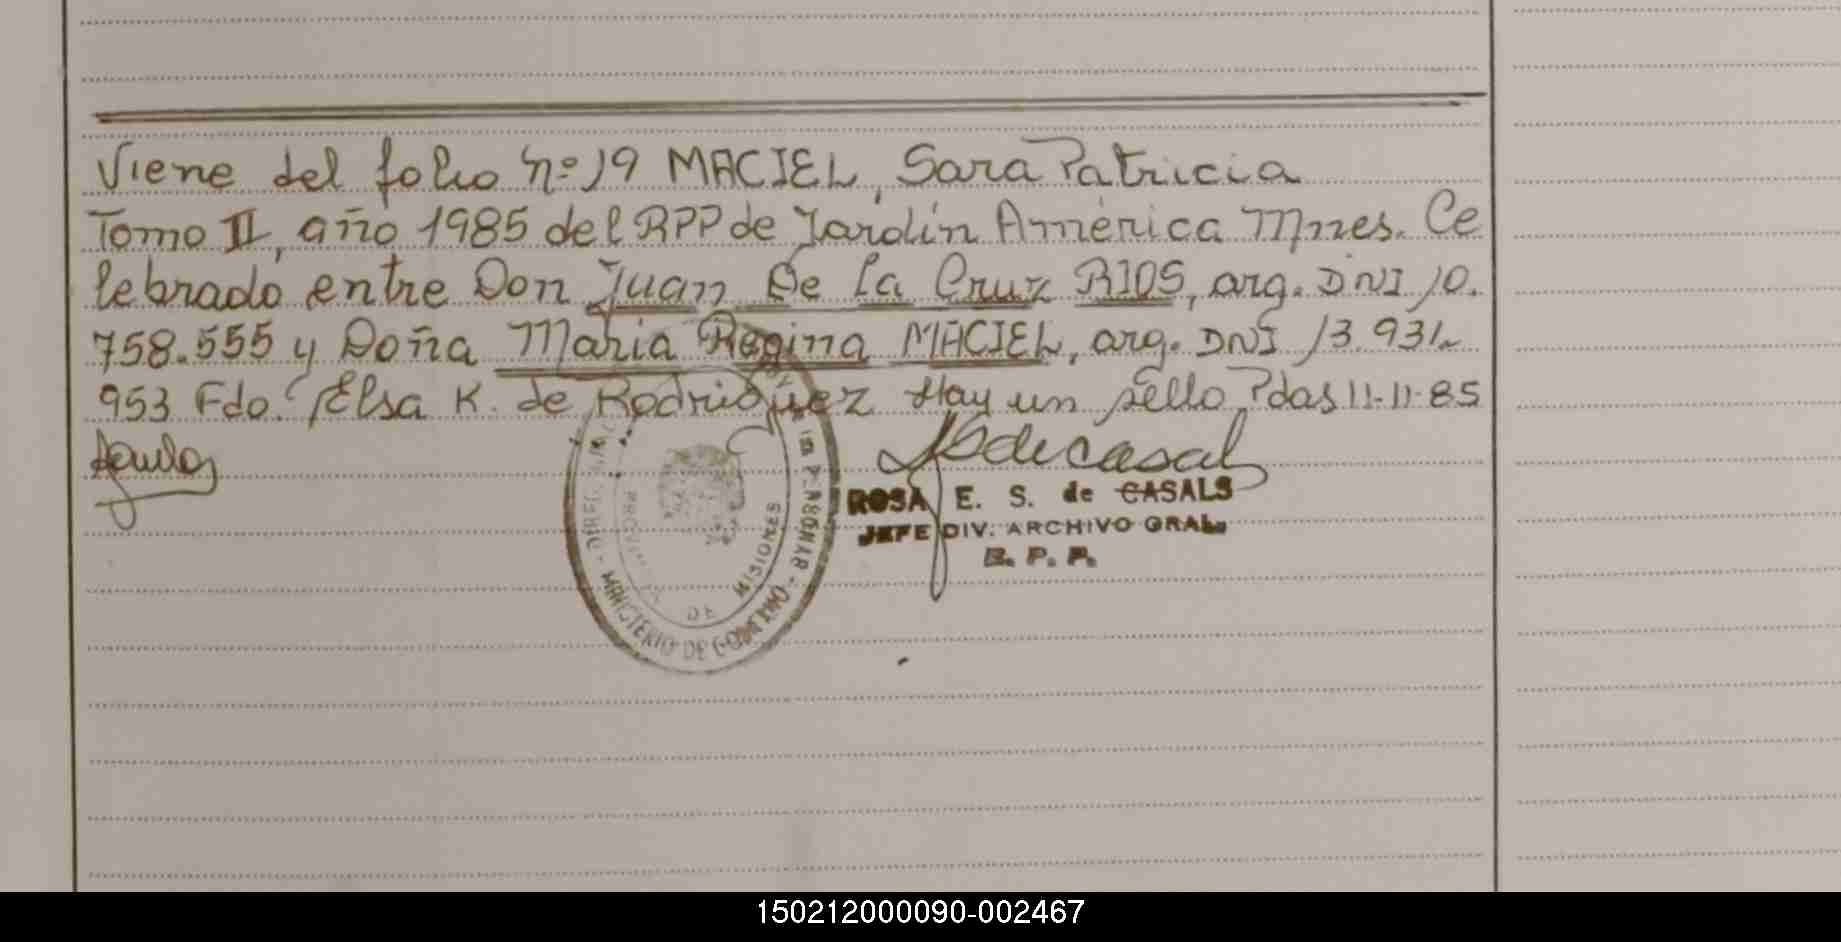 Viene del folio nº 19 MACIEL, Sara Patricia
Tomo II, año 1985 del RPP de Jardín América Mnes. Ce
lebrado entre Don Juan De La Cruz RIOS, arg. DNI 10.
758.555 y Doña Maria Regina MACIEL, arg. DNI 13.931~
953 Fdo. Elsa K. de Rodriguez Hay un sello Pdas 11-11-85
ROSA E. S. de CASALS
JEFE DIV. ARCHIVO GRAL.
R. P. P.
MINISTERIO DE GOBIERNO
DE MISIONES
150212000090-002467